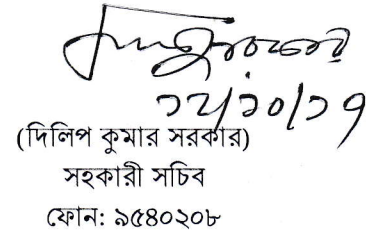 ১২/১০/১৭
(দিলিপ কুমার সরকার)
সহকারী সচিব
ফোন: ৯৫৪০২০৮